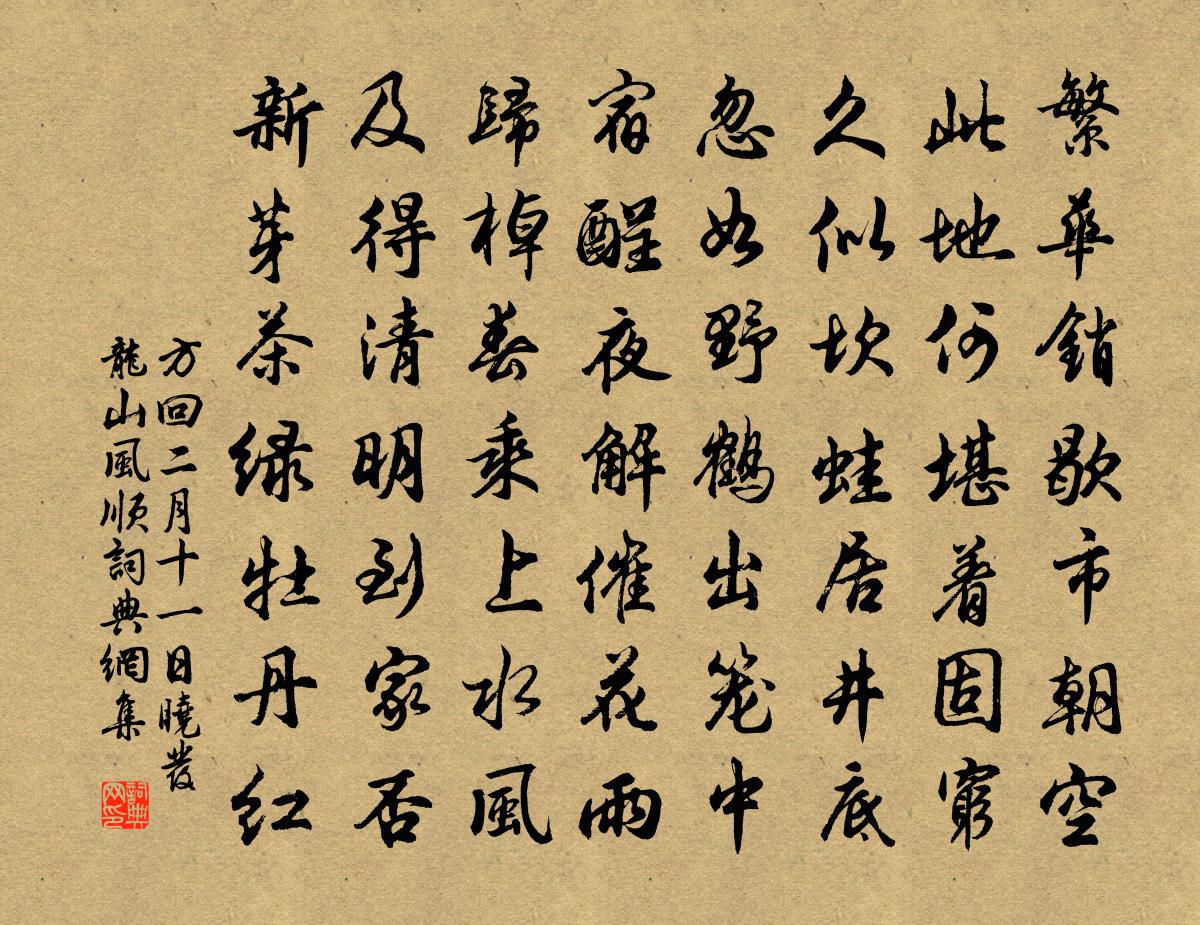 繁華銷歇市朝空
此地何堪着固窮
久似坎蛙居井底
忽如野鶴出笼中
宿酲夜解催花雨
歸棹春乘上水風
及得清明到家否
新芽茶绿牡丹红
方回二月十一日曉發
龍山風順詞典網集
詞典
网印